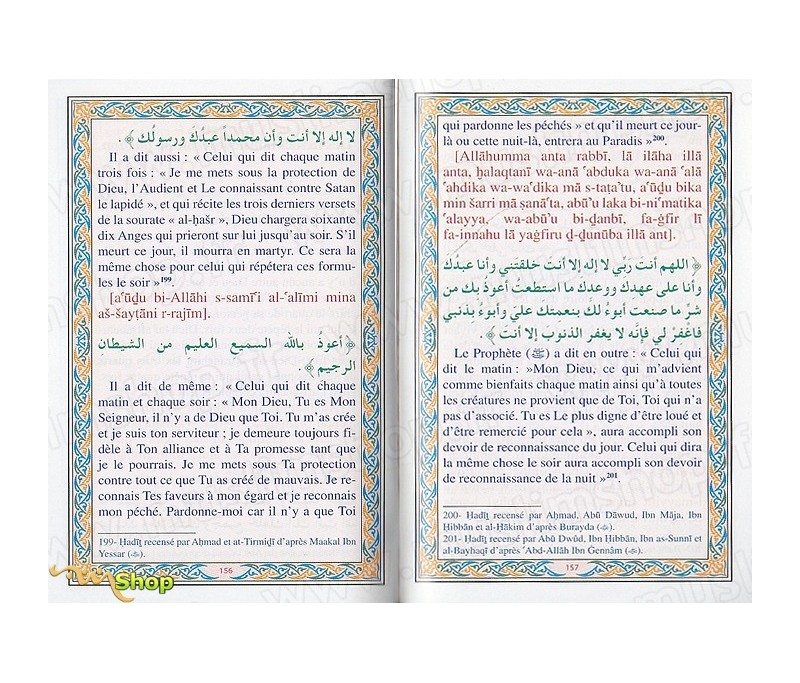 لا إله إلا أنت وأن محمداً عبدُكَ ورسولُك ﴾.
Il a dit aussi : « Celui qui dit chaque matin
trois fois : « Je me mets sous la protection de
Dieu, l'Audient et Le connaissant contre Satan
le lapidé », et qui récite les trois derniers versets
de la sourate « al-ḥašr », Dieu chargera soixante
dix Anges qui prieront sur lui jusqu'au soir. S'il
meurt ce jour, il mourra en martyr. Ce sera la
même chose pour celui qui répétera ces formu-
les le soir »¹⁹⁹.
[aʿūḏu bi-Allāhi s-samīʿi al-ʿalīmi mina
aš-šayṭāni r-rajīm].
﴿ أعوذُ بالله السميع العليم من الشيطانِ
الرجيم ﴾.
Il a dit de même : « Celui qui dit chaque
matin et chaque soir : « Mon Dieu, Tu es Mon
Seigneur, il n'y a de Dieu que Toi. Tu m'as crée
et je suis ton serviteur ; je demeure toujours fi-
dèle à Ton alliance et à Ta promesse tant que
je le pourrais. Je me mets sous Ta protection
contre tout ce que Tu as créé de mauvais. Je re-
connais Tes faveurs à mon égard et je reconnais
mon péché. Pardonne-moi car il n'y a que Toi
199- Ḥadīṯ recensé par Aḥmad et at-Tirmiḏī d'après Maakal Ibn
Yessar
156
qui pardonne les péchés » et qu'il meurt ce jour-
là ou cette nuit-là, entrera au Paradis »²⁰⁰.
[Allāhumma anta rabbī, lā ilāha illā
anta, ḫalaqtanī wa-anā ʿabduka wa-anā ʿalā
ʿahdika wa-waʿdika mā s-taṭaʿtu, aʿūḏu bika
min šarri mā ṣanāʿta, abūʾu laka bi-niʿmatika
ʿalayya, wa-abūʾu bi-ḏanbī, fa-ġfir lī
fa-innahu lā yaġfiru ḏ-ḏunūba illā ant].
﴿ اللهم أنتَ ربِّي لا إله إلا أنتَ خلقتَني وأنا عبدُكَ
وأنا على عهدِكَ ووعدِكَ ما استطعتُ أعوذُ بك من
شرِّ ما صنعت أبوءُ لكَ بنعمتكَ عليَّ وأبوءُ بذنبي
فاغفرْ لي فإنَّه لا يغفر الذنوبَ إلا أنتَ ﴾.
Le Prophète (ﷺ) a dit en outre : « Celui qui
dit le matin : »Mon Dieu, ce qui m'advient
comme bienfaits chaque matin ainsi qu'à toutes
les créatures ne provient que de Toi, Toi qui n'a
pas d'associé. Tu es Le plus digne d'être loué et
d'être remercié pour cela », aura accompli son
devoir de reconnaissance du jour. Celui qui dira
la même chose le soir aura accompli son devoir
de reconnaissance de la nuit »²⁰¹.
200- Ḥadīṯ recensé par Aḥmad, Abū Dāwud, Ibn Māja, Ibn
Ḥibbān et al-Ḥākim d'après Burayda
201- Ḥadīṯ recensé par Abū Dwûd, Ibn Ḥibbān, Ibn as-Sunnī et
al-Bayhaqī d'après ʿAbd-Allāh Ibn Ġennām
157
Shop